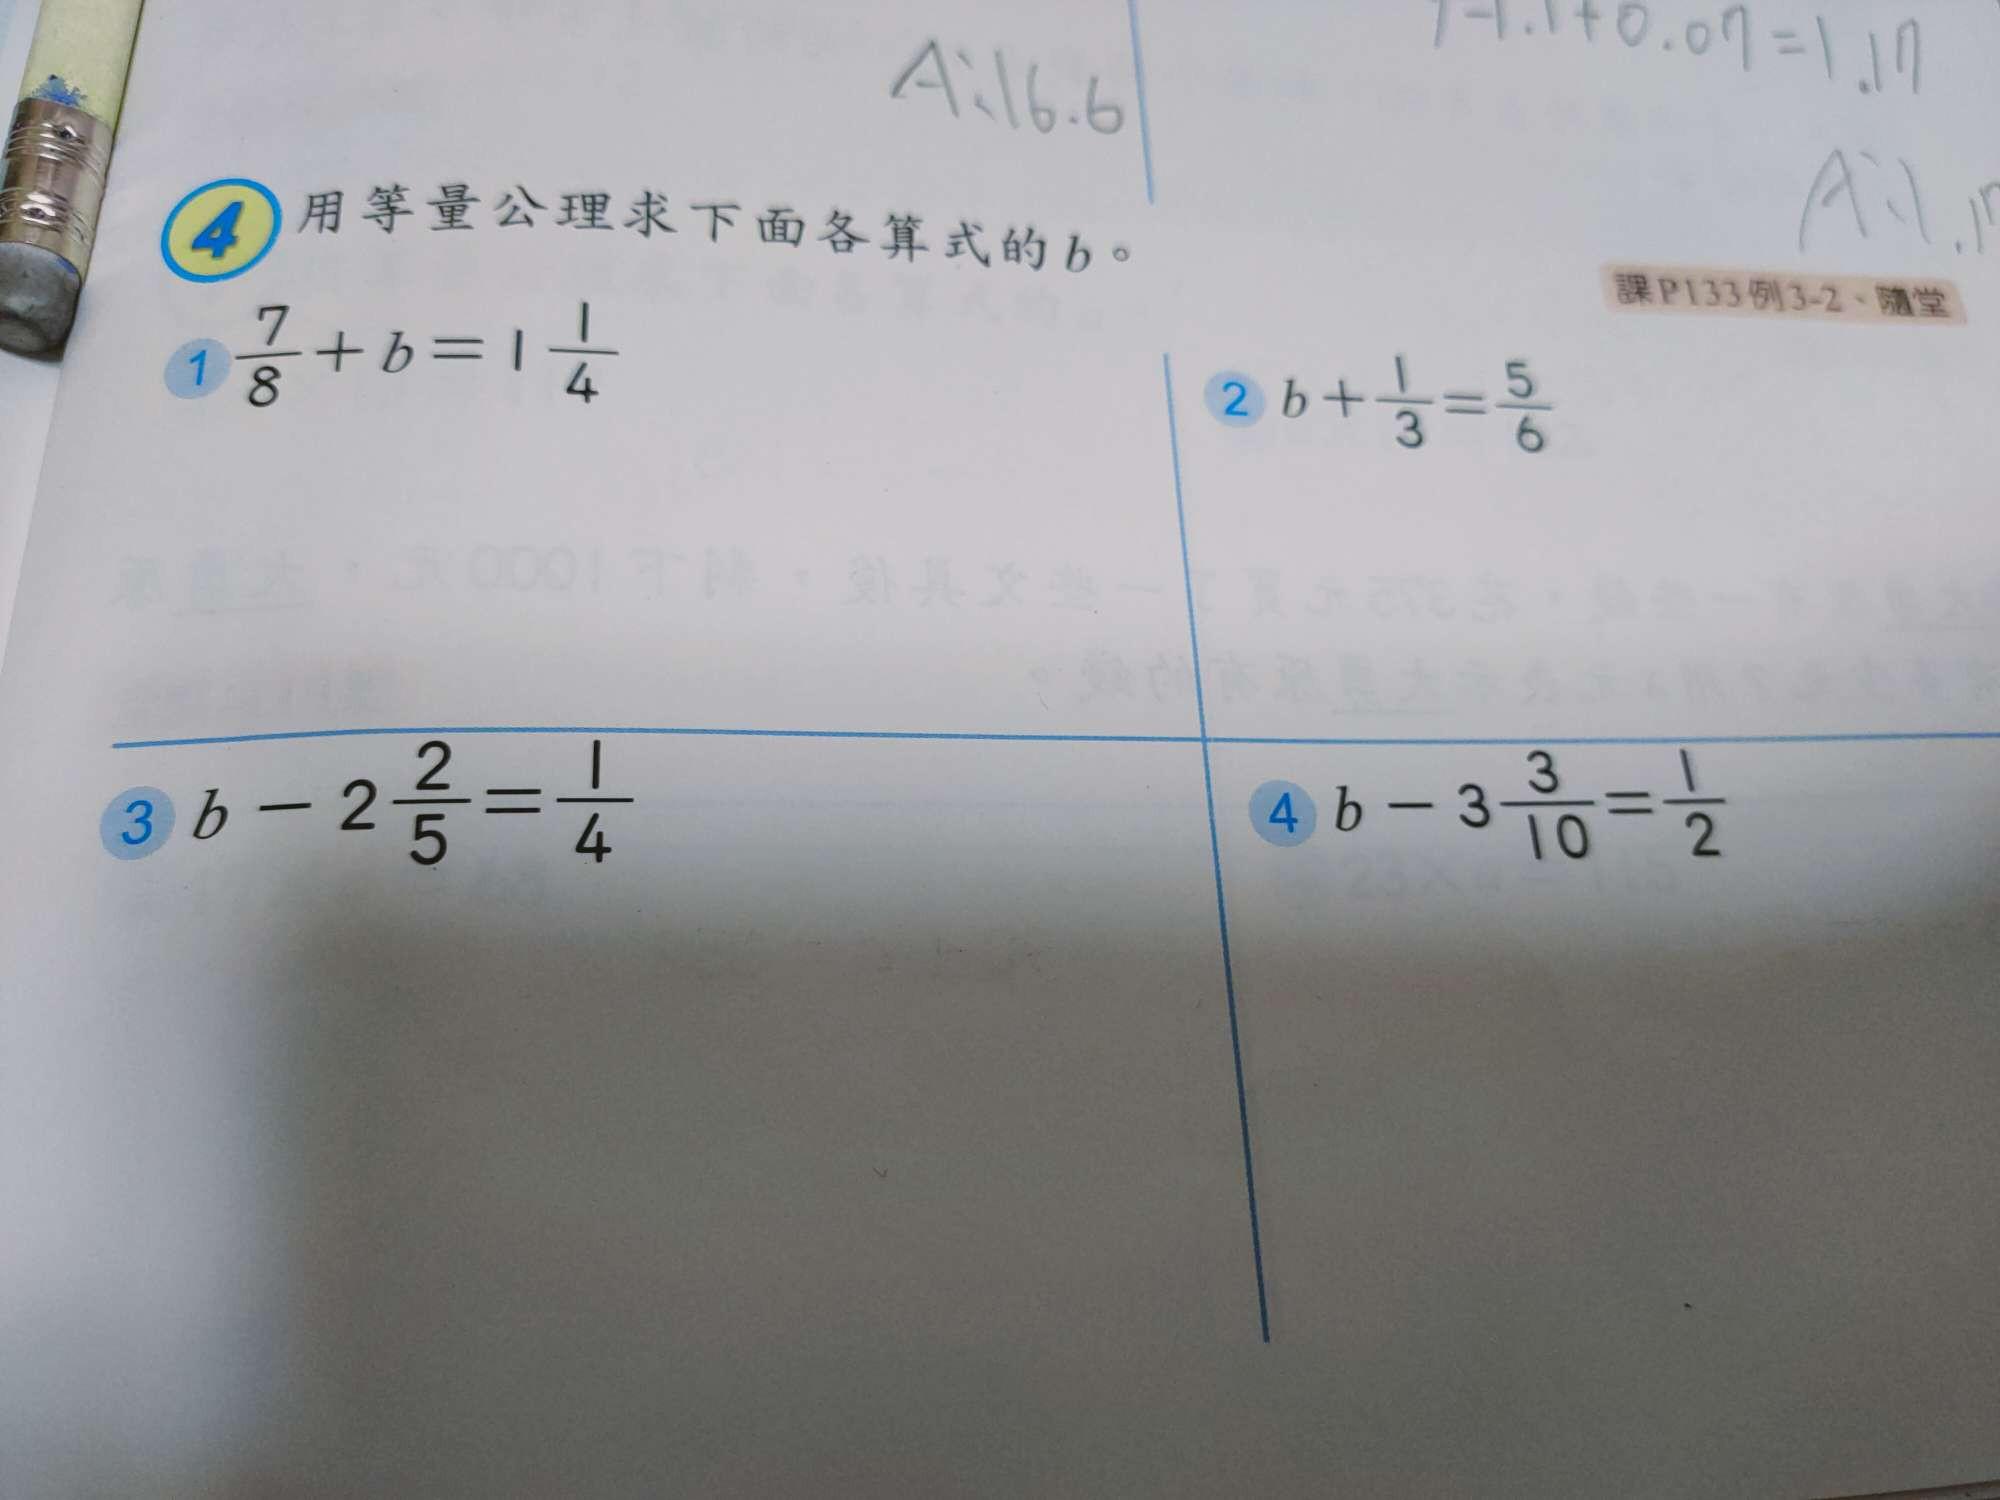 A:16.6
-1.1+0.07=1.17
A:1.17
4 用等量公理求下面各算式的b。
課P133例3-2、隨堂
1 7/8+b=1 1/4
2 b+1/3=5/6
3 b-2 2/5=1/4
4 b-3 3/10=1/2